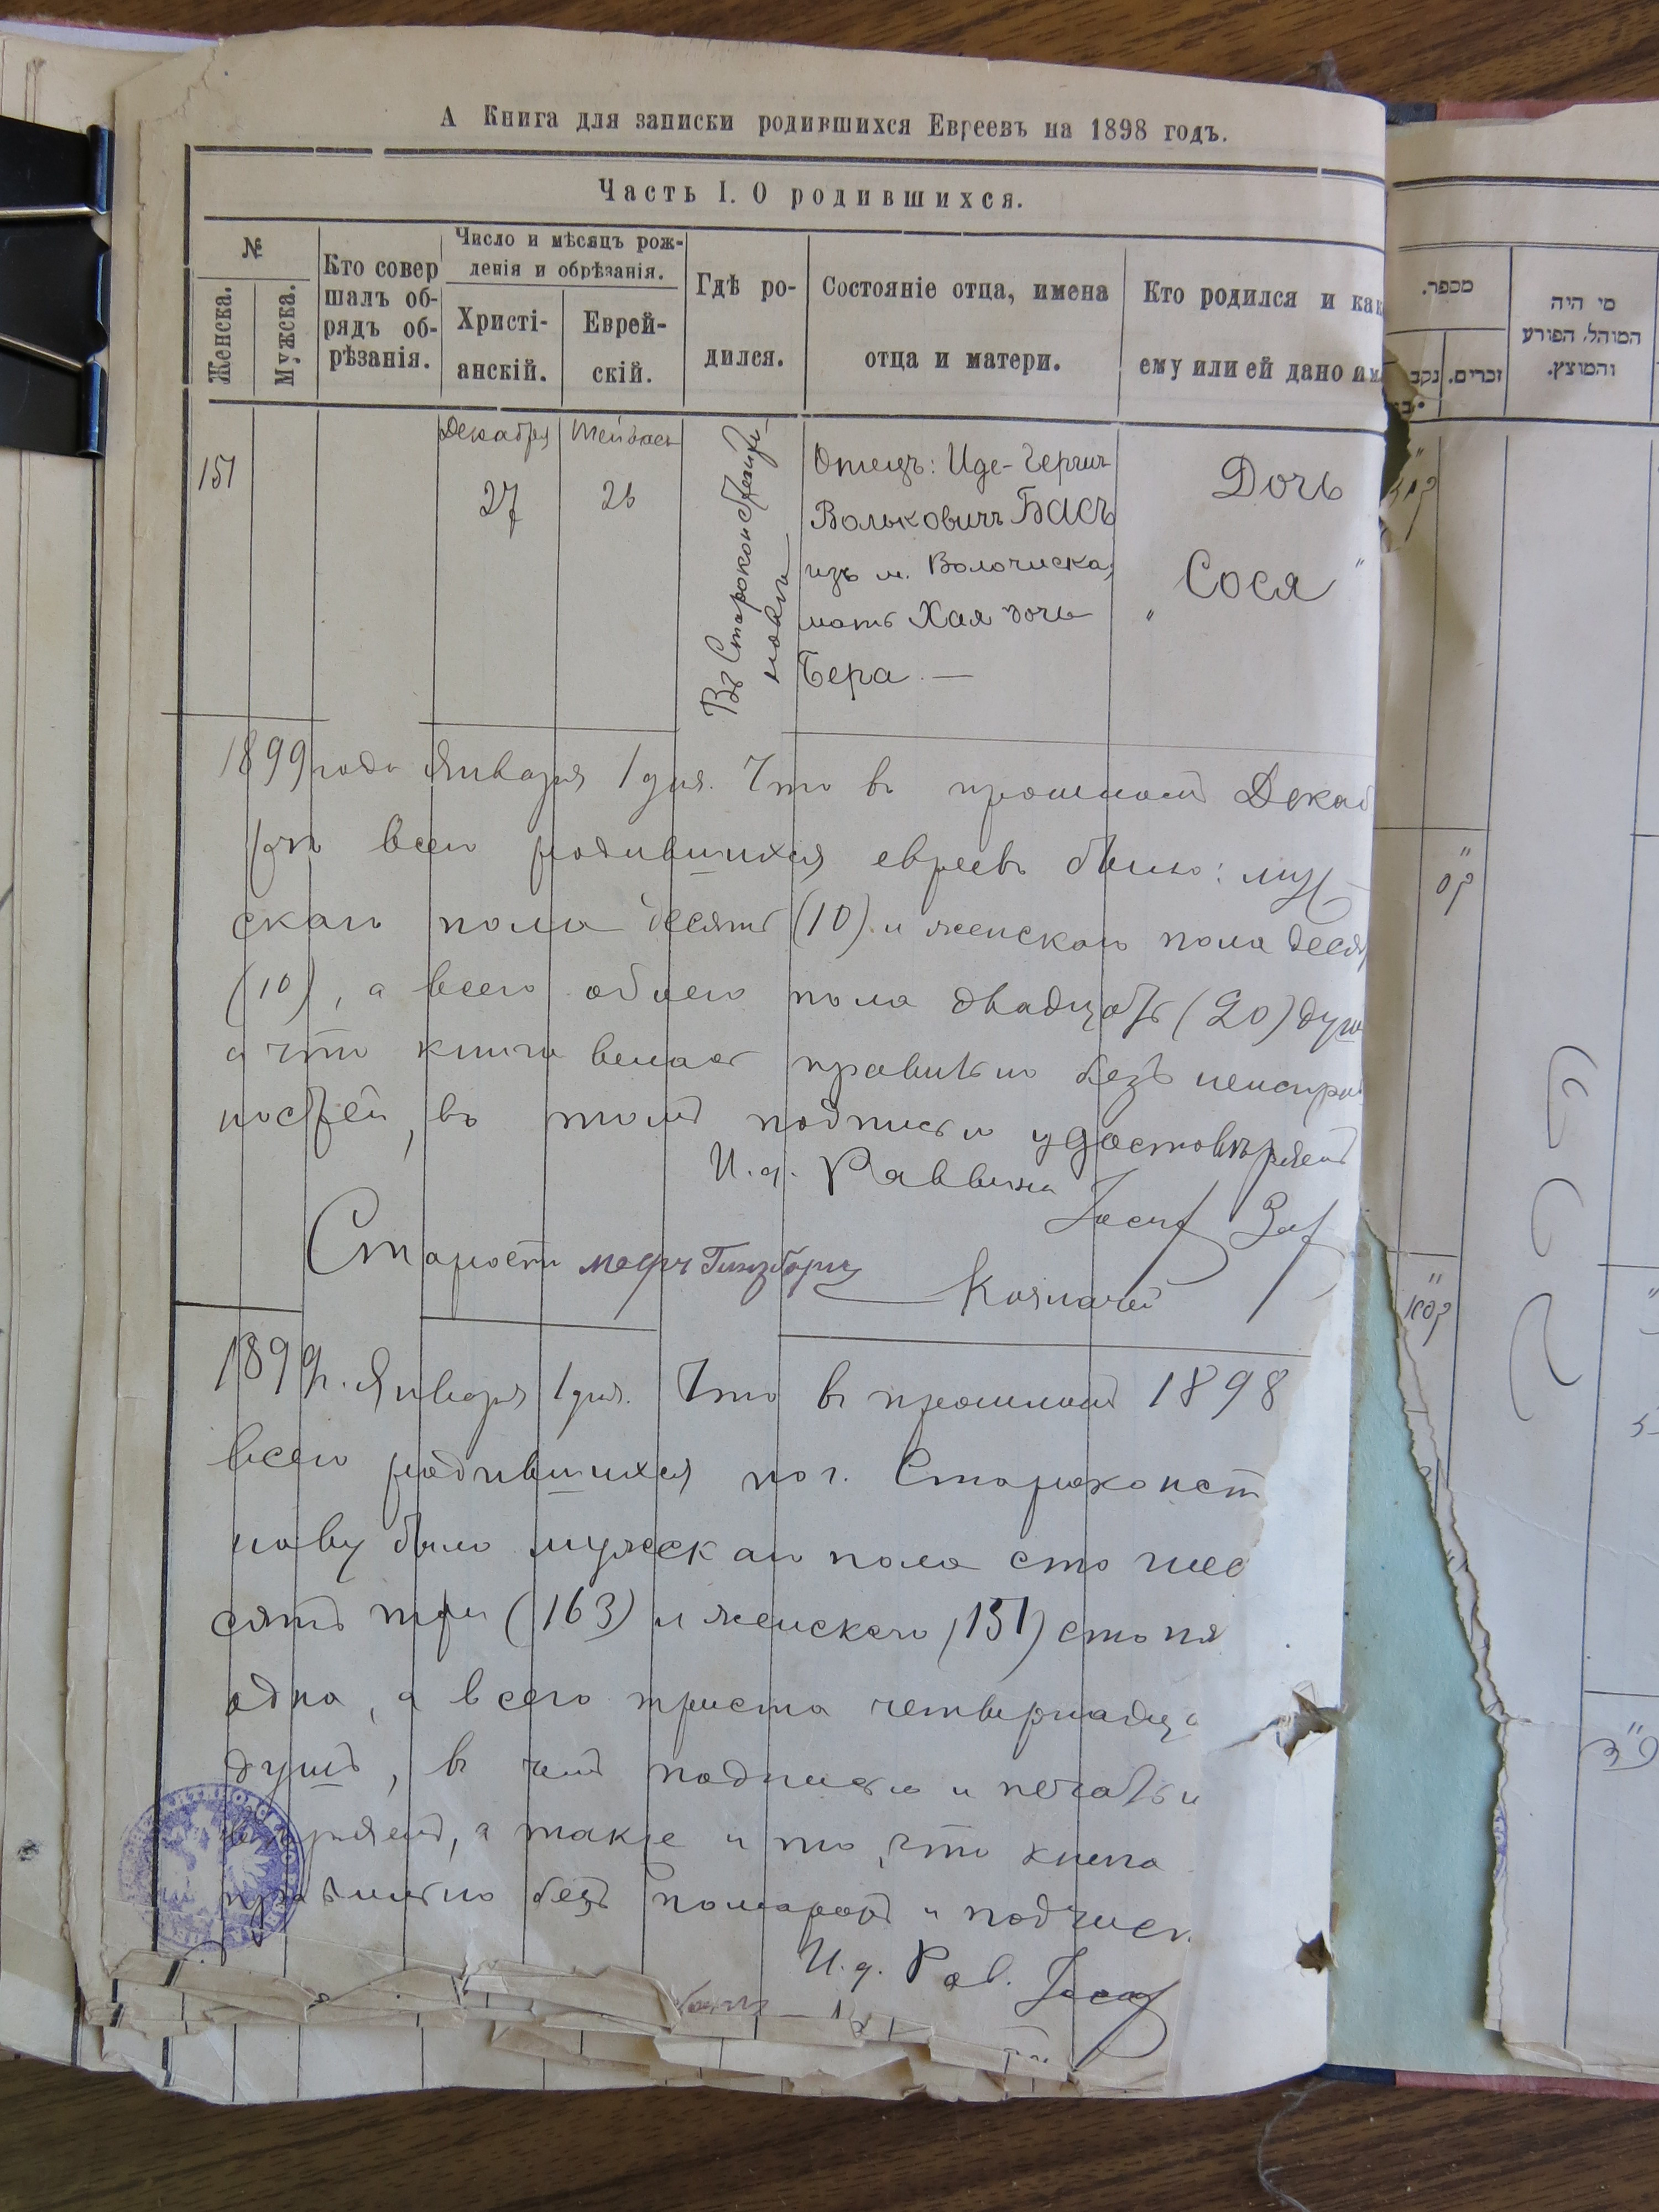 А Книга для записки родившихся Евреевъ на 1898 годъ.
Часть I. О родившихся.
№
Женска.
Мужска.
Кто совер
шалъ об-
рядъ об-
рѣзанія.
Число и мѣсяцъ рож-
денія и обрѣзанія.
Христі-
анскій.
Еврей-
скій.
Гдѣ ро-
дился.
Состояніе отца, имена
отца и матери.
Кто родился и как
ему или ей дано им
151
Декабря
27
Тейвась
26
Въ Староконстанти-
новѣ
Отецъ: Иде-Гершъ
Волькович Басъ
изъ м. Волочиска,
мать Хая дочь
Бера —
Дочь
"Сося"
1899 года Января 1 дня. Что въ прошломъ Декаб
рѣ всего родившихся евреевъ было: муж-
скаго пола десять (10) и женскаго пола деся
(10), а всего обоего пола двадцать (20) душ
а что книга велась правильно безъ неисправ
ностей, въ томъ подписью удостовѣряемъ
И. д. Раввина
Іосиф
Староста Гинзбургъ
Казначей
1899 г. Января 1 дня. Что въ прошломъ 1898
всего родившихся по г. Староконст
нову было мужскаго пола сто шес
сятъ три (163) и женскаго (151) сто пя
одна, а всего триста четырнадца
душъ, въ чемъ подписью и печатью
вѣряемъ, а также и то, что книга
правильно безъ помарокъ и подчист
И. д. Рав. Іосиф
מספר.
זכרים.
נקב
מי היה
המוהל, הפורע
והמוצץ.